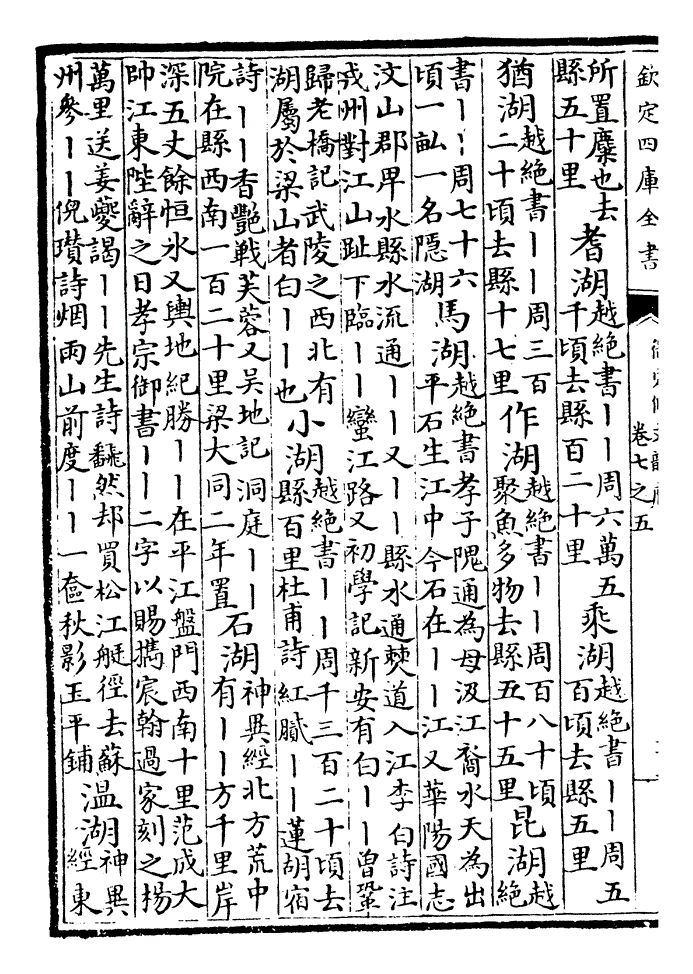 欽定四庫全書
卷七之五
所置麋也去
縣五十里
耆湖
越絕書丨丨周六萬五
千頃去縣百二十里
乘湖
越絕書丨丨周五
百頃去縣五里
猶湖
越絕書丨丨周三百
二十頃去縣十七里
作湖
越絕書丨丨周百八十頃
聚魚多物去縣五十五里
昆湖
越
絕
書丨丨周七十六
頃一畝一名隱湖
馬湖
越絕書孝子隗通為母汲江裔水天為出
平石生江中今石在丨丨江又華陽國志
汶山郡畀水縣水流通丨丨又丨丨縣水通僰道入江李白詩注
戎州對江山趾下臨丨丨蠻江路又初學記新安有白丨丨曾鞏
歸老橋記武陵之西北有
湖屬於梁山者白丨丨也
小湖
越絕書丨丨周千三百二十頃去
縣百里杜甫詩紅膩丨丨蓮胡宿
詩丨丨香艷戰芙蓉又吳地記洞庭丨丨
院在縣西南一百二十里梁大同二年置
石湖
神異經北方荒中
有丨丨方千里岸
深五丈餘恒氷又輿地紀勝丨丨在平江盤門西南十里范成大
帥江東陛辭之日孝宗御書丨丨二字以賜攜宸翰過家刻之楊
萬里送姜夔謁丨丨先生詩翻然却買松江艇徑去蘇
州參丨丨倪瓚詩烟雨山前度丨丨一奩秋影玉平鋪
温湖
神異
經東